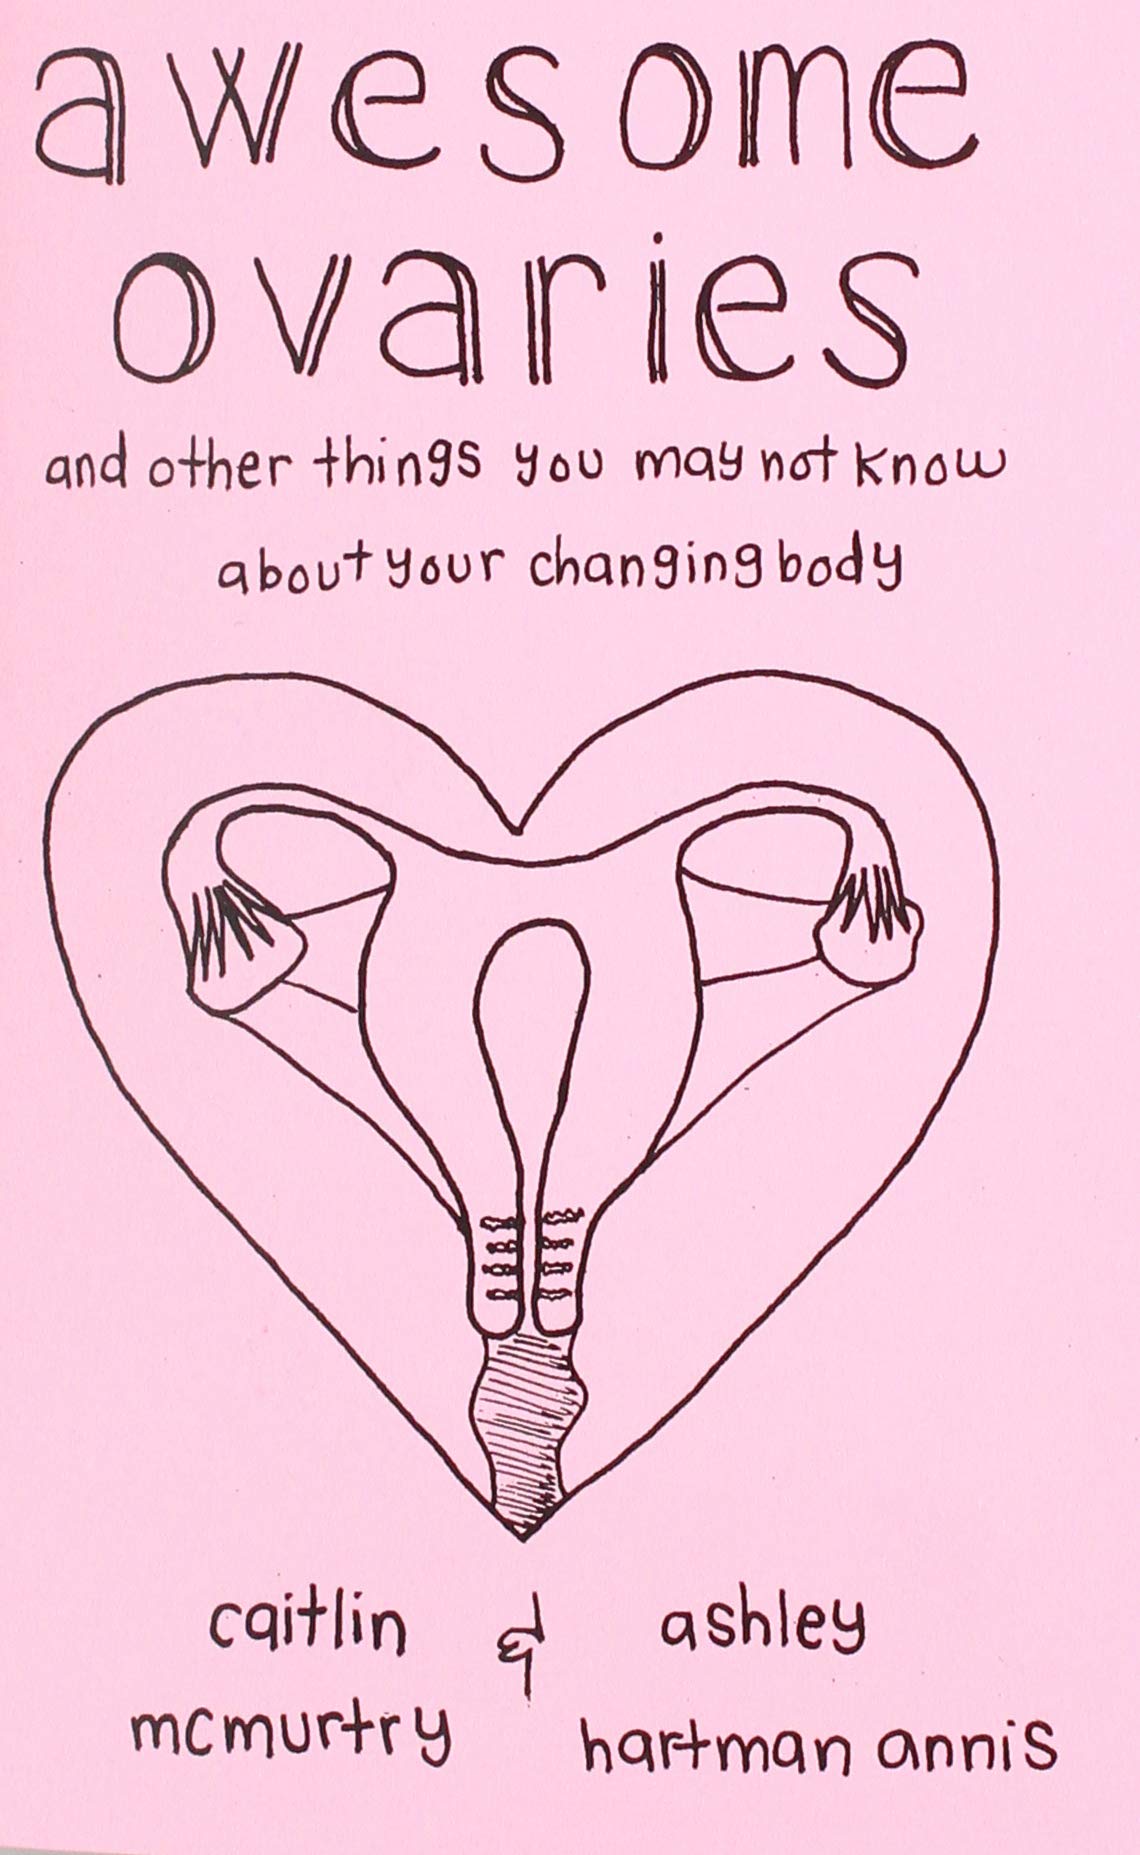 awesome
ovaries
and other things you may not know
about your changing body
caitlin & ashley
mcmurtry hartman annis